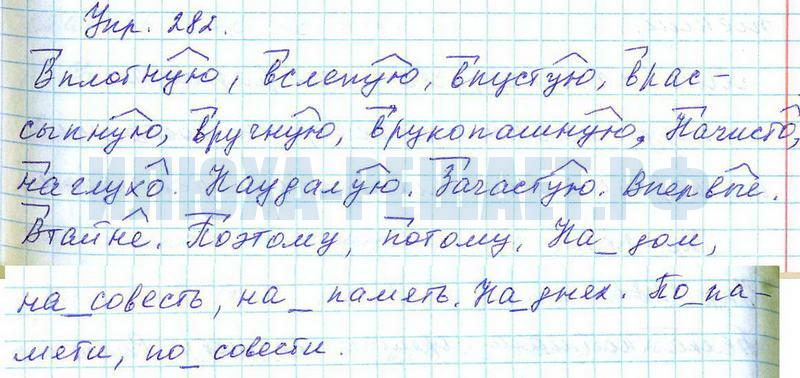 Упр. 282.
Вплотную, вслепую, впустую, врас-
сыпную, вручную, врукопашную. Начисто,
наглухо. Наудалую. Зачастую. Впервые.
Втайне. Поэтому, потому. На_дом,
на_совесть, на_память. На_днях. По_па-
мяти, по_совести.